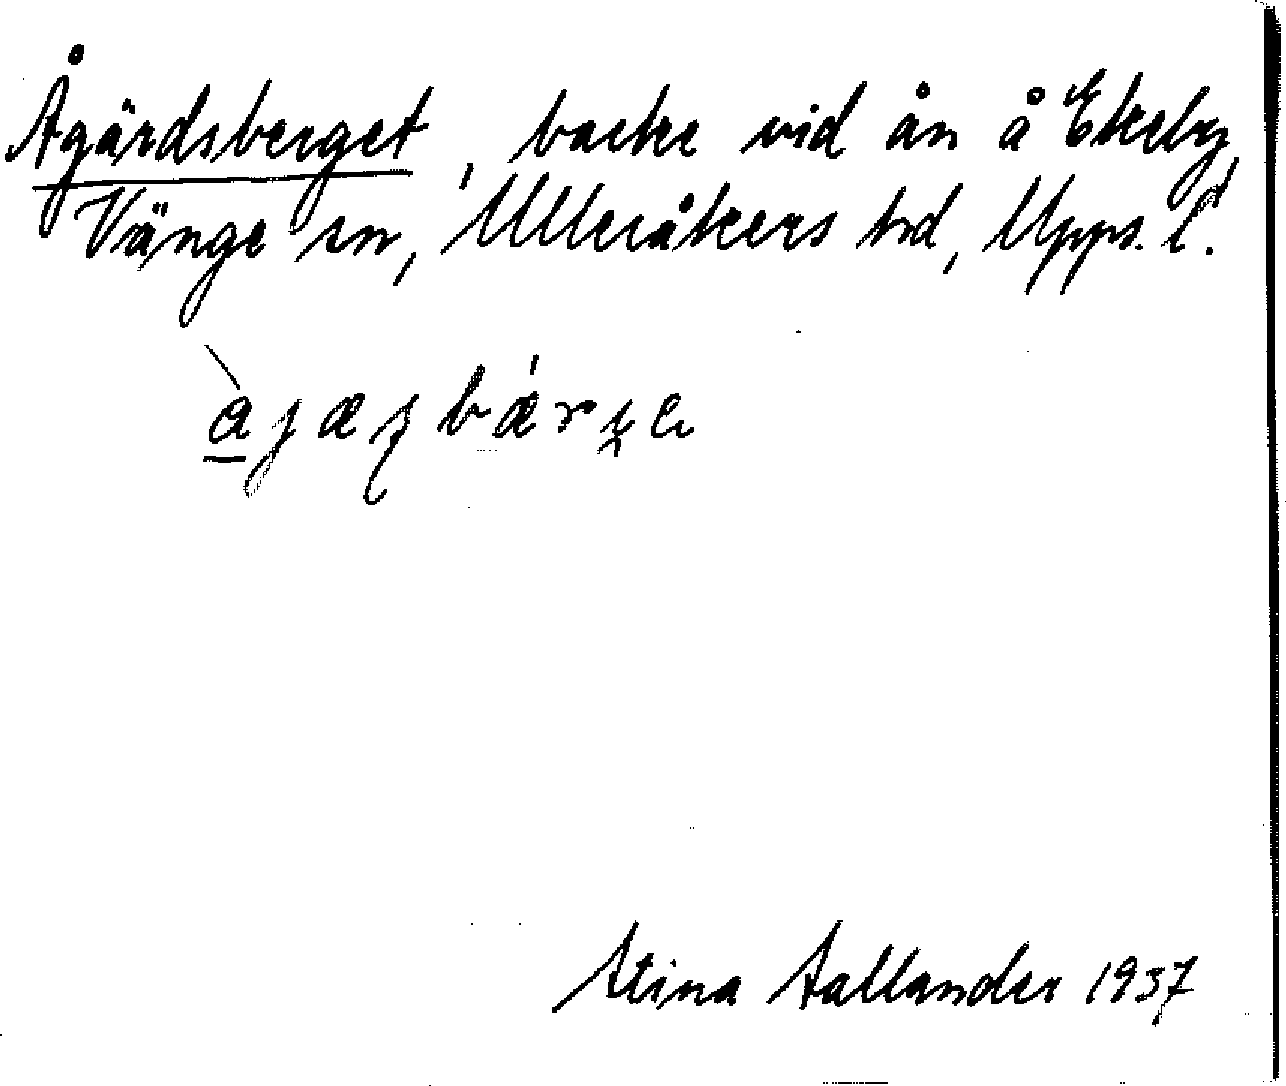 Ågärdsberget, backe vid ån å Ekeby,
Vänge sn, Ulleråkers hd, Upps. l.
Stina Hallander 1937